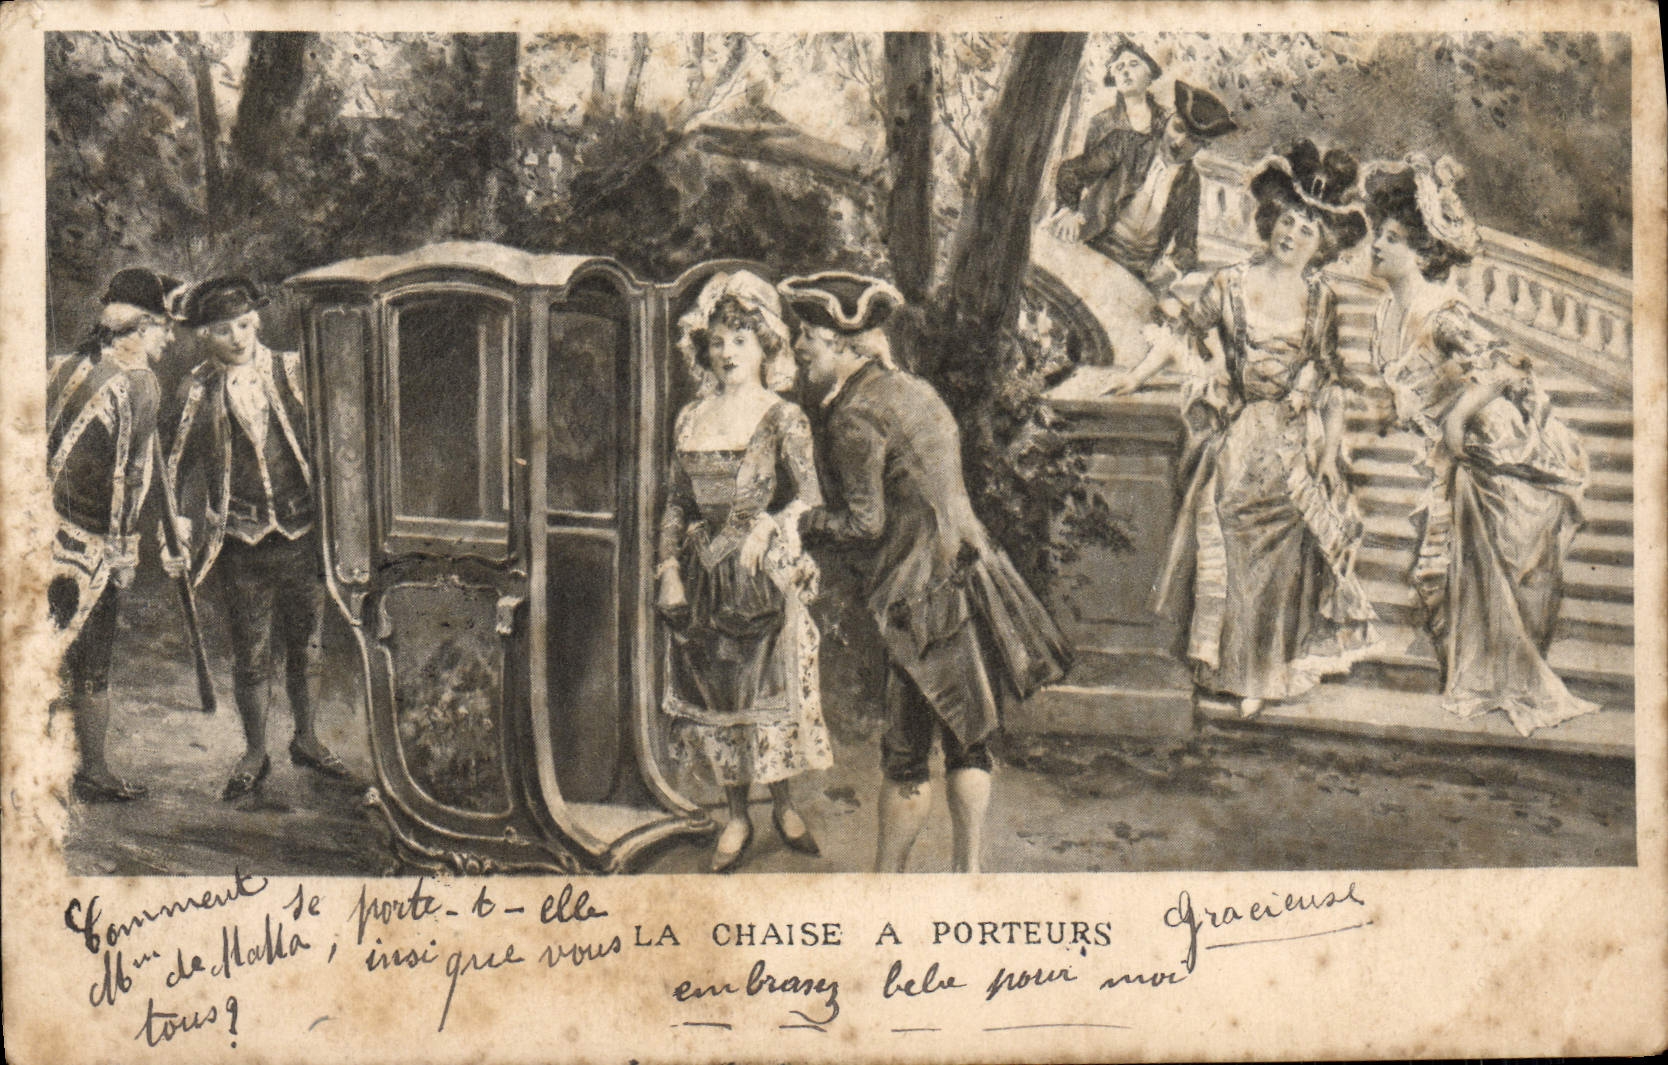 Comment se porte-t-elle
Mme de Malla, insi que vous
tous?
LA CHAISE A PORTEURS
Gracieuse
embrasez bebe pour moi